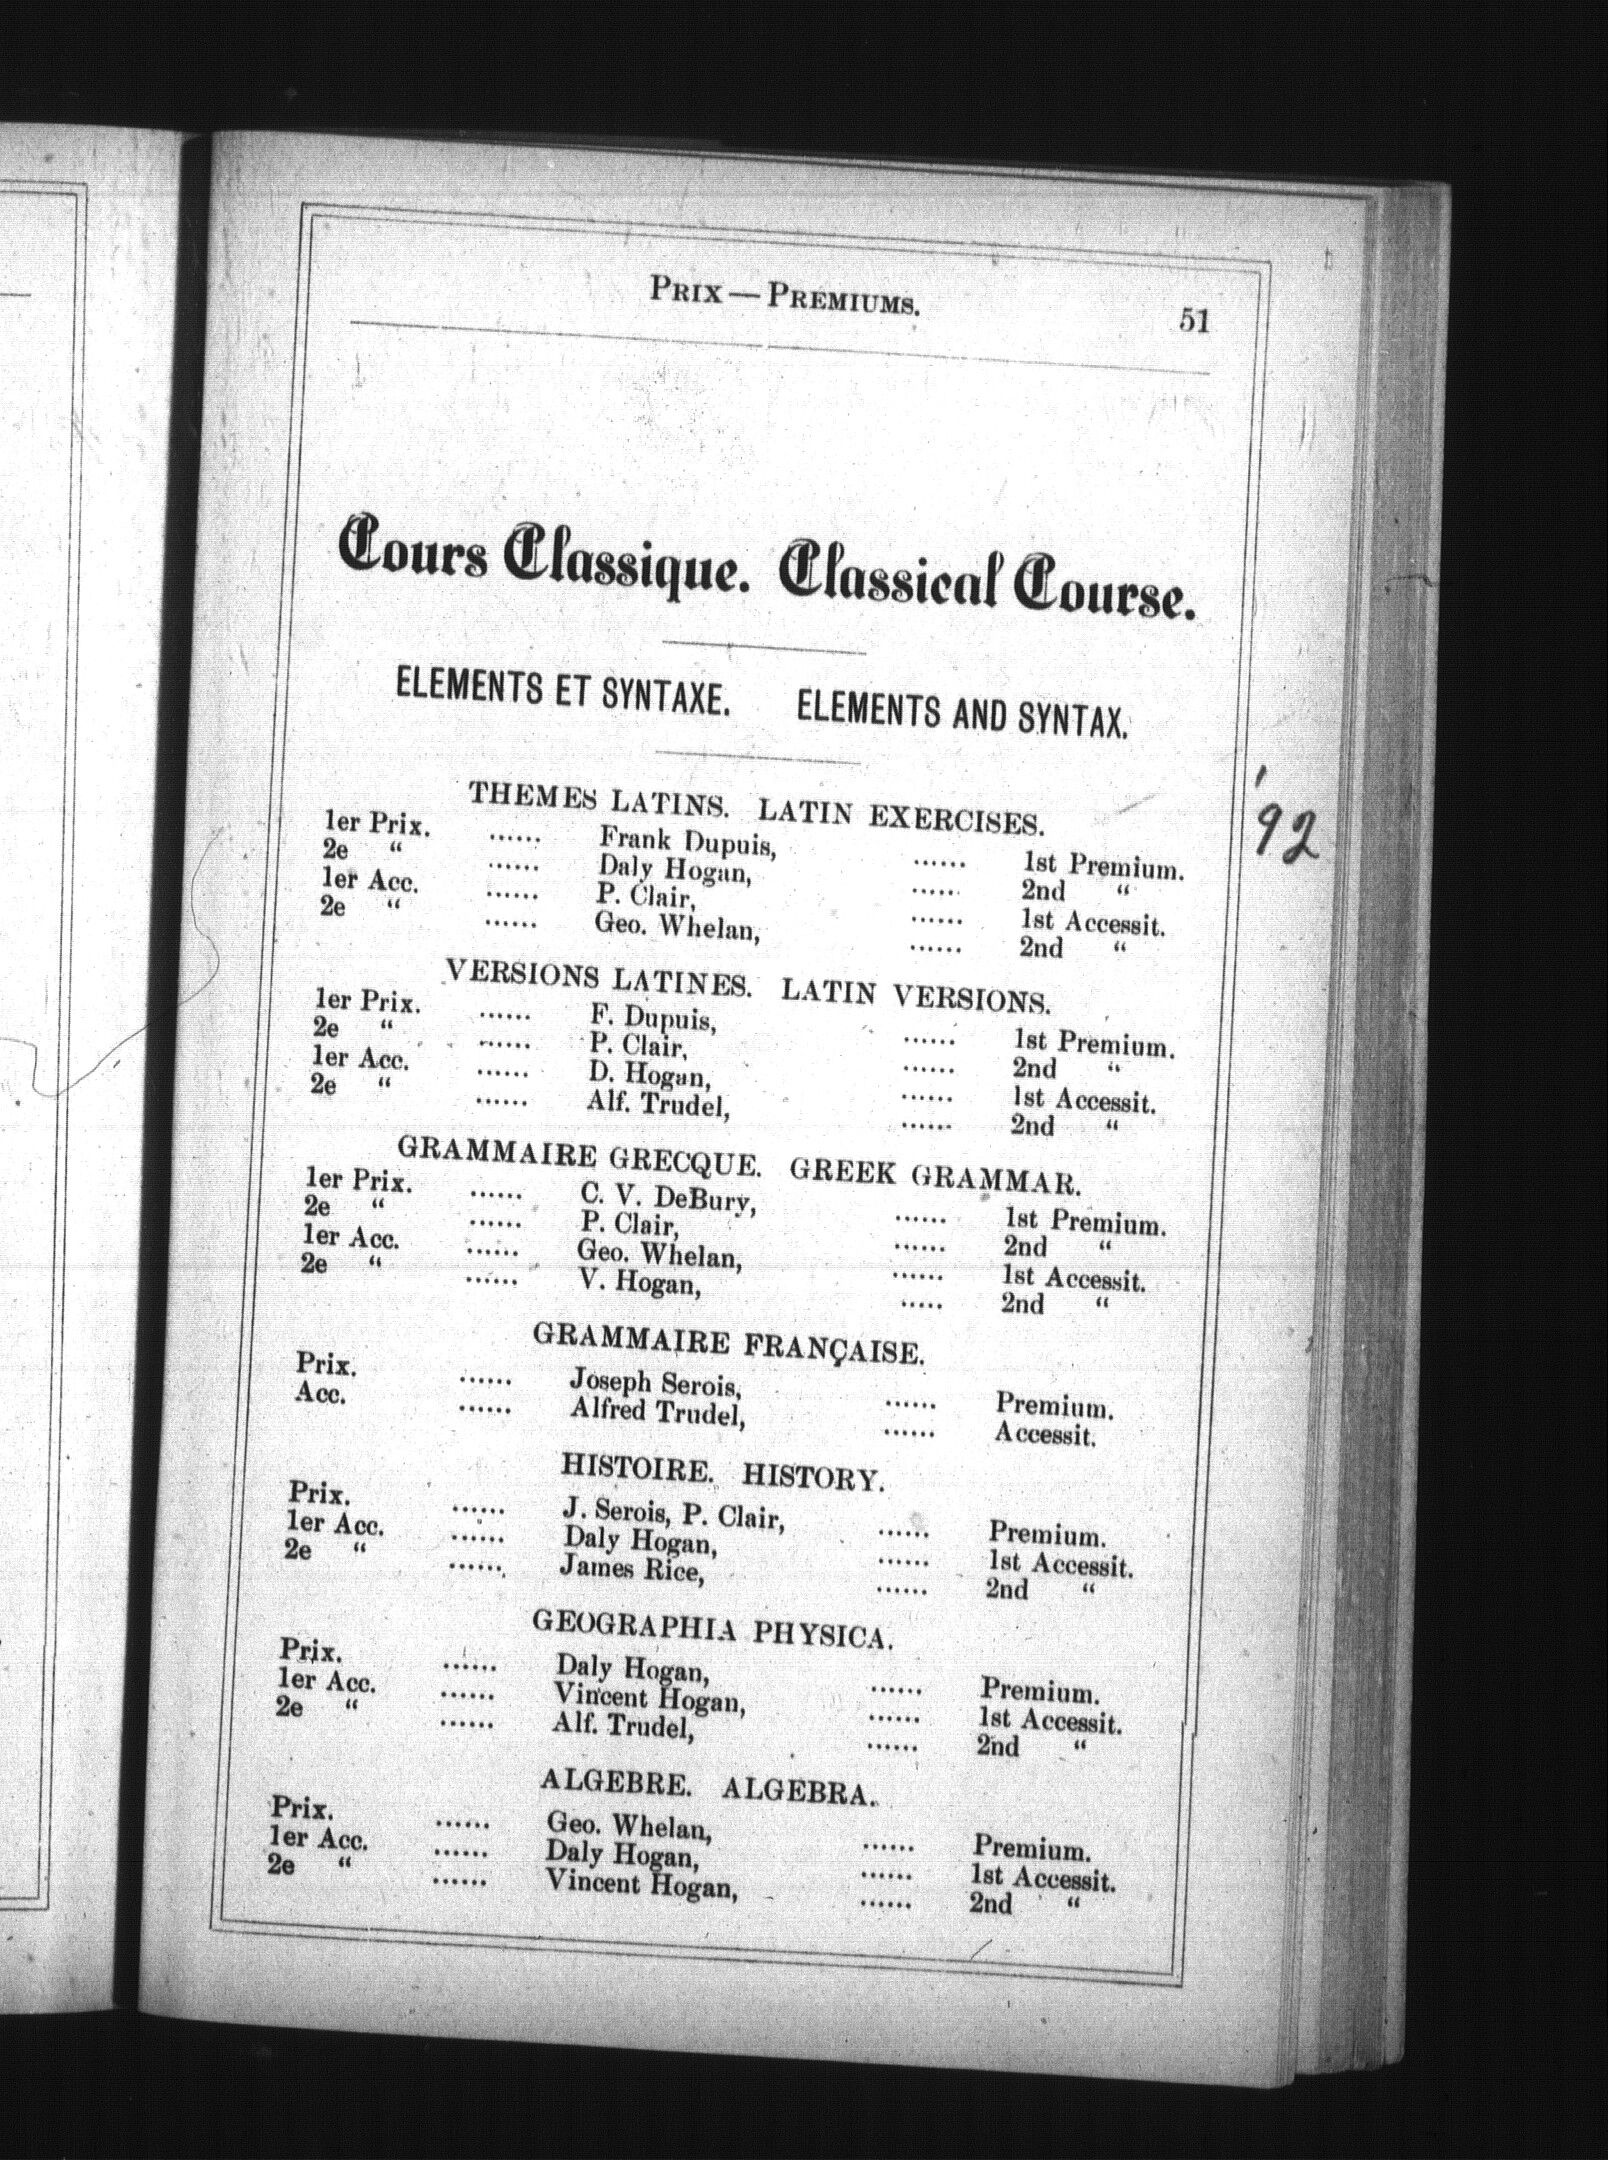 PRIX — PREMIUMS. 51
Cours Classique. Classical Course.
ELEMENTS ET SYNTAXE. ELEMENTS AND SYNTAX.
THEMES LATINS. LATIN EXERCISES.
1er Prix. ...... Frank Dupuis, ...... 1st Premium.
2e “ ...... Daly Hogan, ...... 2nd “
1er Acc. ...... P. Clair, ...... 1st Accessit.
2e “ ...... Geo. Whelan, ...... 2nd “
'92
VERSIONS LATINES. LATIN VERSIONS.
1er Prix. ...... F. Dupuis, ...... 1st Premium.
2e “ ...... P. Clair, ...... 2nd “
1er Acc. ...... D. Hogan, ...... 1st Accessit.
2e “ ...... Alf. Trudel, ...... 2nd “
GRAMMAIRE GRECQUE. GREEK GRAMMAR.
1er Prix. ...... C. V. DeBury, ...... 1st Premium.
2e “ ...... P. Clair, ...... 2nd “
1er Acc. ...... Geo. Whelan, ...... 1st Accessit.
2e “ ...... V. Hogan, ..... 2nd “
GRAMMAIRE FRANÇAISE.
Prix. ...... Joseph Serois, ...... Premium.
Acc. ...... Alfred Trudel, ...... Accessit.
HISTOIRE. HISTORY.
Prix. ...... J. Serois, P. Clair, ...... Premium.
1er Acc. ...... Daly Hogan, ...... 1st Accessit.
2e “ ...... James Rice, ...... 2nd “
GEOGRAPHIA PHYSICA.
Prix. ...... Daly Hogan, ...... Premium.
1er Acc. ...... Vincent Hogan, ...... 1st Accessit.
2e “ ...... Alf. Trudel, ...... 2nd “
ALGEBRE. ALGEBRA.
Prix. ...... Geo. Whelan, ...... Premium.
1er Acc. ...... Daly Hogan, ...... 1st Accessit.
2e “ ...... Vincent Hogan, ...... 2nd “